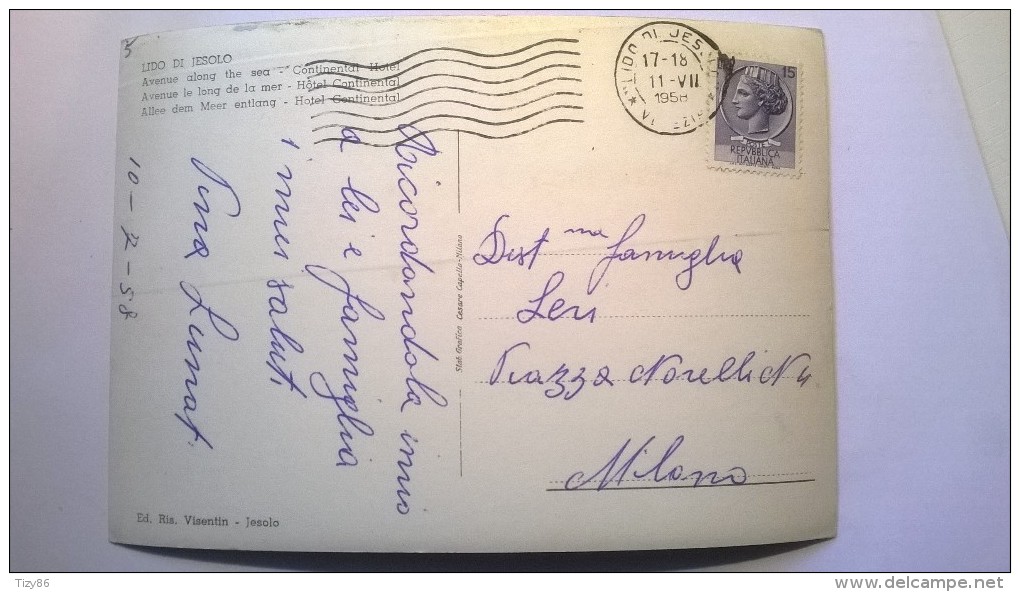 LIDO DI JESOLO
Avenue along the sea - Continental Hotel
Avenue le long de la mer - Hôtel Continental
Allee dem Meer entlang - Hotel Continental
17-18
11-VII
1958
15
POSTE
REPVBBLICA
ITALIANA
Ricordandola invio
a lei e famiglia
i miei saluti
Pina
10-7-58
Stab. Grafico Cesare Capello-Milano
Dist ma famiglia
Piazza Novelli N 4
Milano
Ed. Ris. Visentin - Jesolo
Tizy86
www.delcampe.net